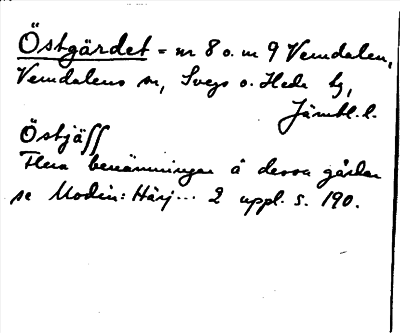 Östgärdet = nr 8 o. nr 9 Vemdalen,
Vemdalens sn, Svegs o. Hede tg,
Jämtl. l.
Östjäff
Flera benämningar å dessa gårdar
se Modin: Härj... 2 uppl. s. 190.